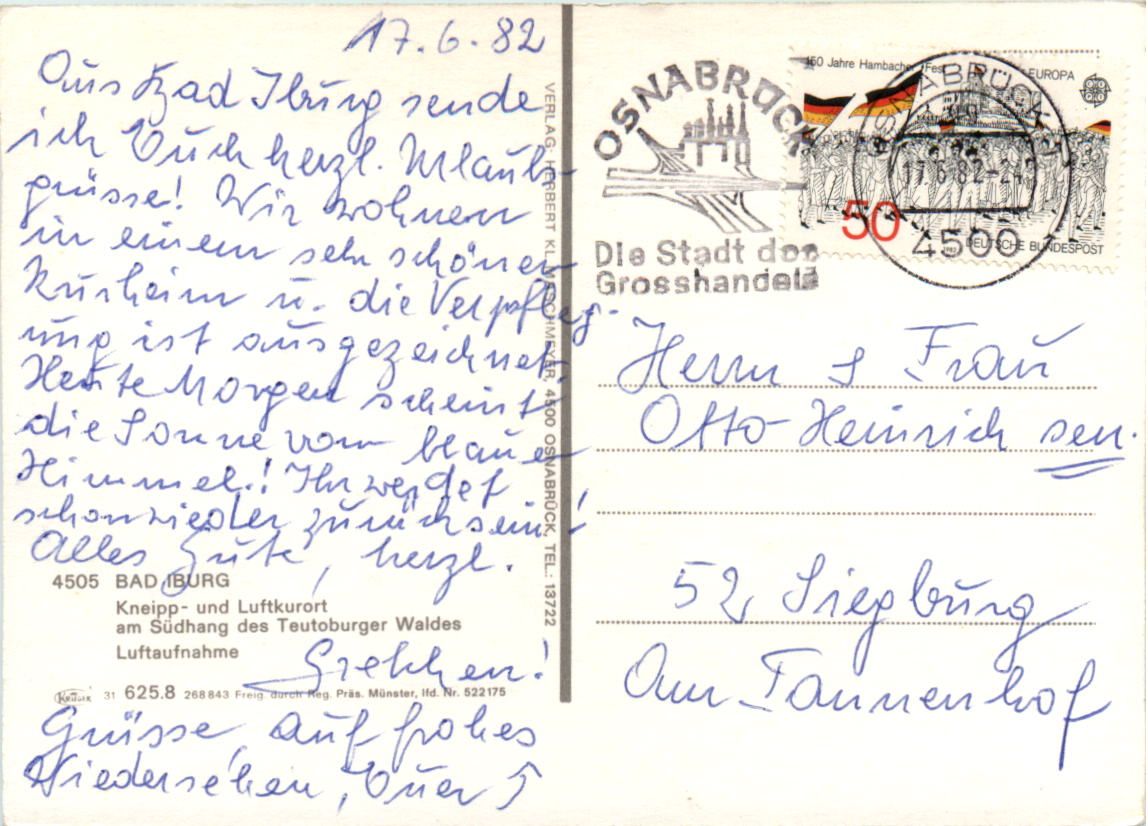 17.6.82
Aus Bad Iburg sende
ich Euch herzl. Urlaubs-
grüsse! Wir wohnen
in einem sehr schönen
Kurheim u. die Verpfleg-
ung ist ausgezeichnet.
Heute Morgen scheint
die Sonne vom blauen
Himmel! Ihr werdet
schon wieder zurück sein!
Alles Gute, herzl.
4505 BAD IBURG
Kneipp- und Luftkurort
am Südhang des Teutoburger Waldes
Luftaufnahme
KRÜGER 31 625.8 268843 Freig. durch Reg. Präs. Münster, lfd. Nr. 522175
Grüsse, auf frohes
Wiedersehen, Euer
Gretchen!
VERLAG: HERBERT 4500 OSNABRÜCK, TEL.: 13722
OSNABRÜCK
Die Stadt des
Grosshandels
150 Jahre Hambacher Fest
EUROPA
50
DEUTSCHE BUNDESPOST
1982
OSNABRÜCK 1
17.6.82
4500
Herrn & Frau
Otto Heinrich sen.
52 Siegburg
Am Tannenhof